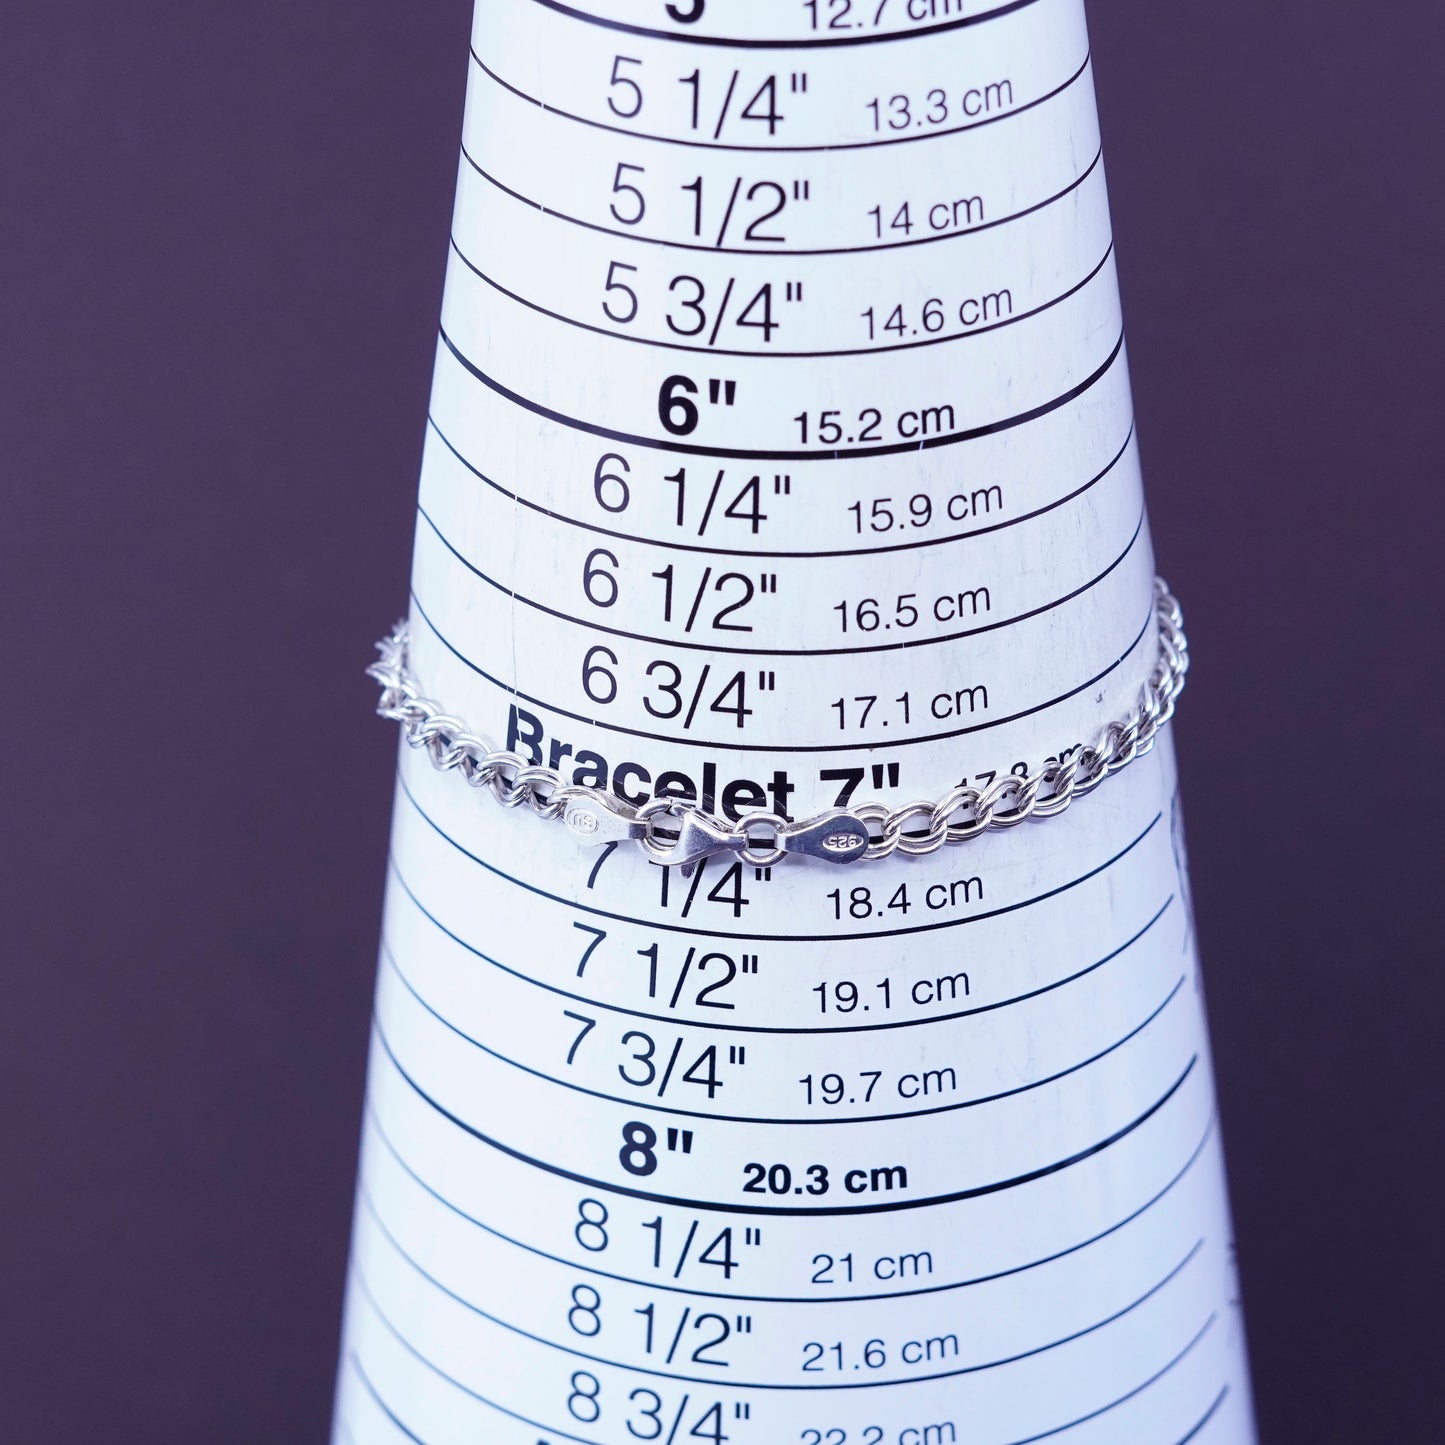 5" 12.7 cm
5 1/4" 13.3 cm
5 1/2" 14 cm
5 3/4" 14.6 cm
6" 15.2 cm
6 1/4" 15.9 cm
6 1/2" 16.5 cm
6 3/4" 17.1 cm
Bracelet 7" 17.8 cm
925
7 1/4" 18.4 cm
7 1/2" 19.1 cm
7 3/4" 19.7 cm
8" 20.3 cm
8 1/4" 21 cm
8 1/2" 21.6 cm
8 3/4" 22.2 cm